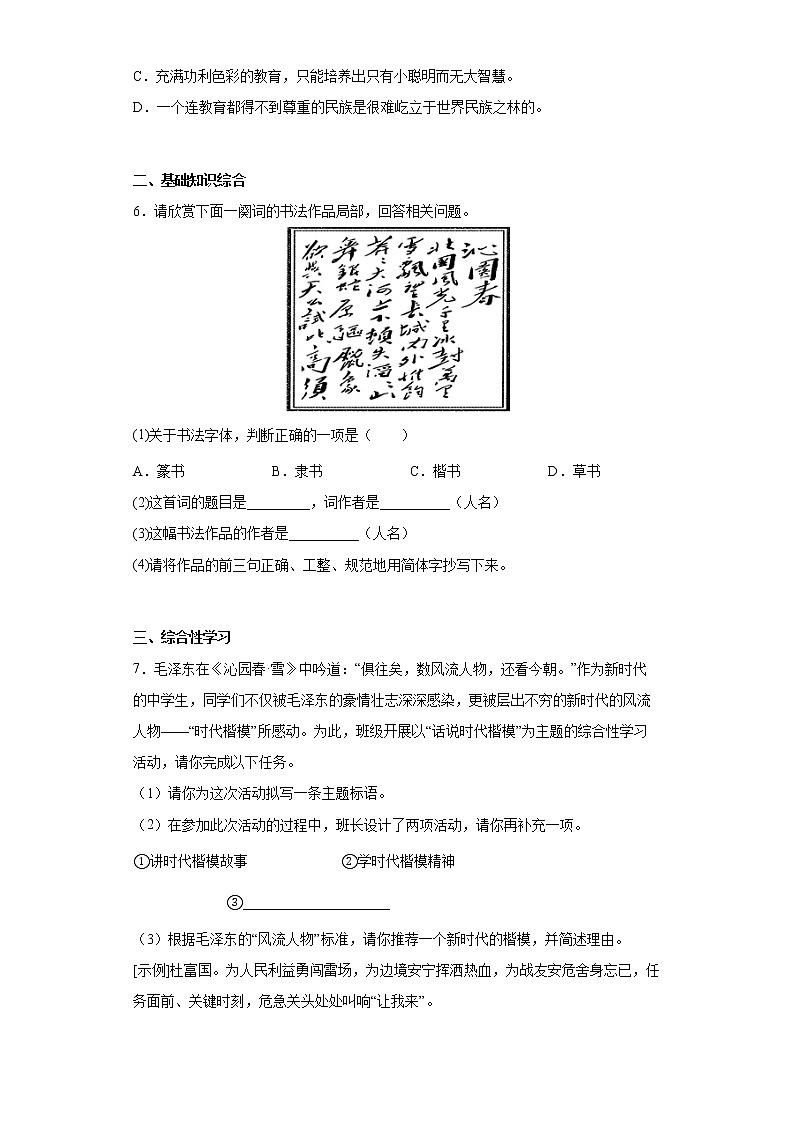 C．充满功利色彩的教育，只能培养出只有小聪明而无大智慧。
D．一个连教育都得不到尊重的民族是很难屹立于世界民族之林的。
二、基础知识综合
6．请欣赏下面一阕词的书法作品局部，回答相关问题。
沁園春
北國風光千里冰封萬里
雪飄望長城內外惟餘
莽〻大河上下頓失滔〻山
舞銀蛇原驅臘象
欲與天公試比高須
(1)关于书法字体，判断正确的一项是（　　）
A．篆书　　B．隶书　　C．楷书　　D．草书
(2)这首词的题目是_________，词作者是__________（人名）
(3)这幅书法作品的作者是__________（人名）
(4)请将作品的前三句正确、工整、规范地用简体字抄写下来。
三、综合性学习
7．毛泽东在《沁园春·雪》中吟道：“俱往矣，数风流人物，还看今朝。”作为新时代
的中学生，同学们不仅被毛泽东的豪情壮志深深感染，更被层出不穷的新时代的风流
人物——“时代楷模”所感动。为此，班级开展以“话说时代楷模”为主题的综合性学习
活动，请你完成以下任务。
（1）请你为这次活动拟写一条主题标语。
（2）在参加此次活动的过程中，班长设计了两项活动，请你再补充一项。
①讲时代楷模故事　　②学时代楷模精神
③_____________________
（3）根据毛泽东的“风流人物”标准，请你推荐一个新时代的楷模，并简述理由。
[示例]杜富国。为人民利益勇闯雷场，为边境安宁挥洒热血，为战友安危舍身忘己，任
务面前、关键时刻，危急关头处处叫响“让我来”。